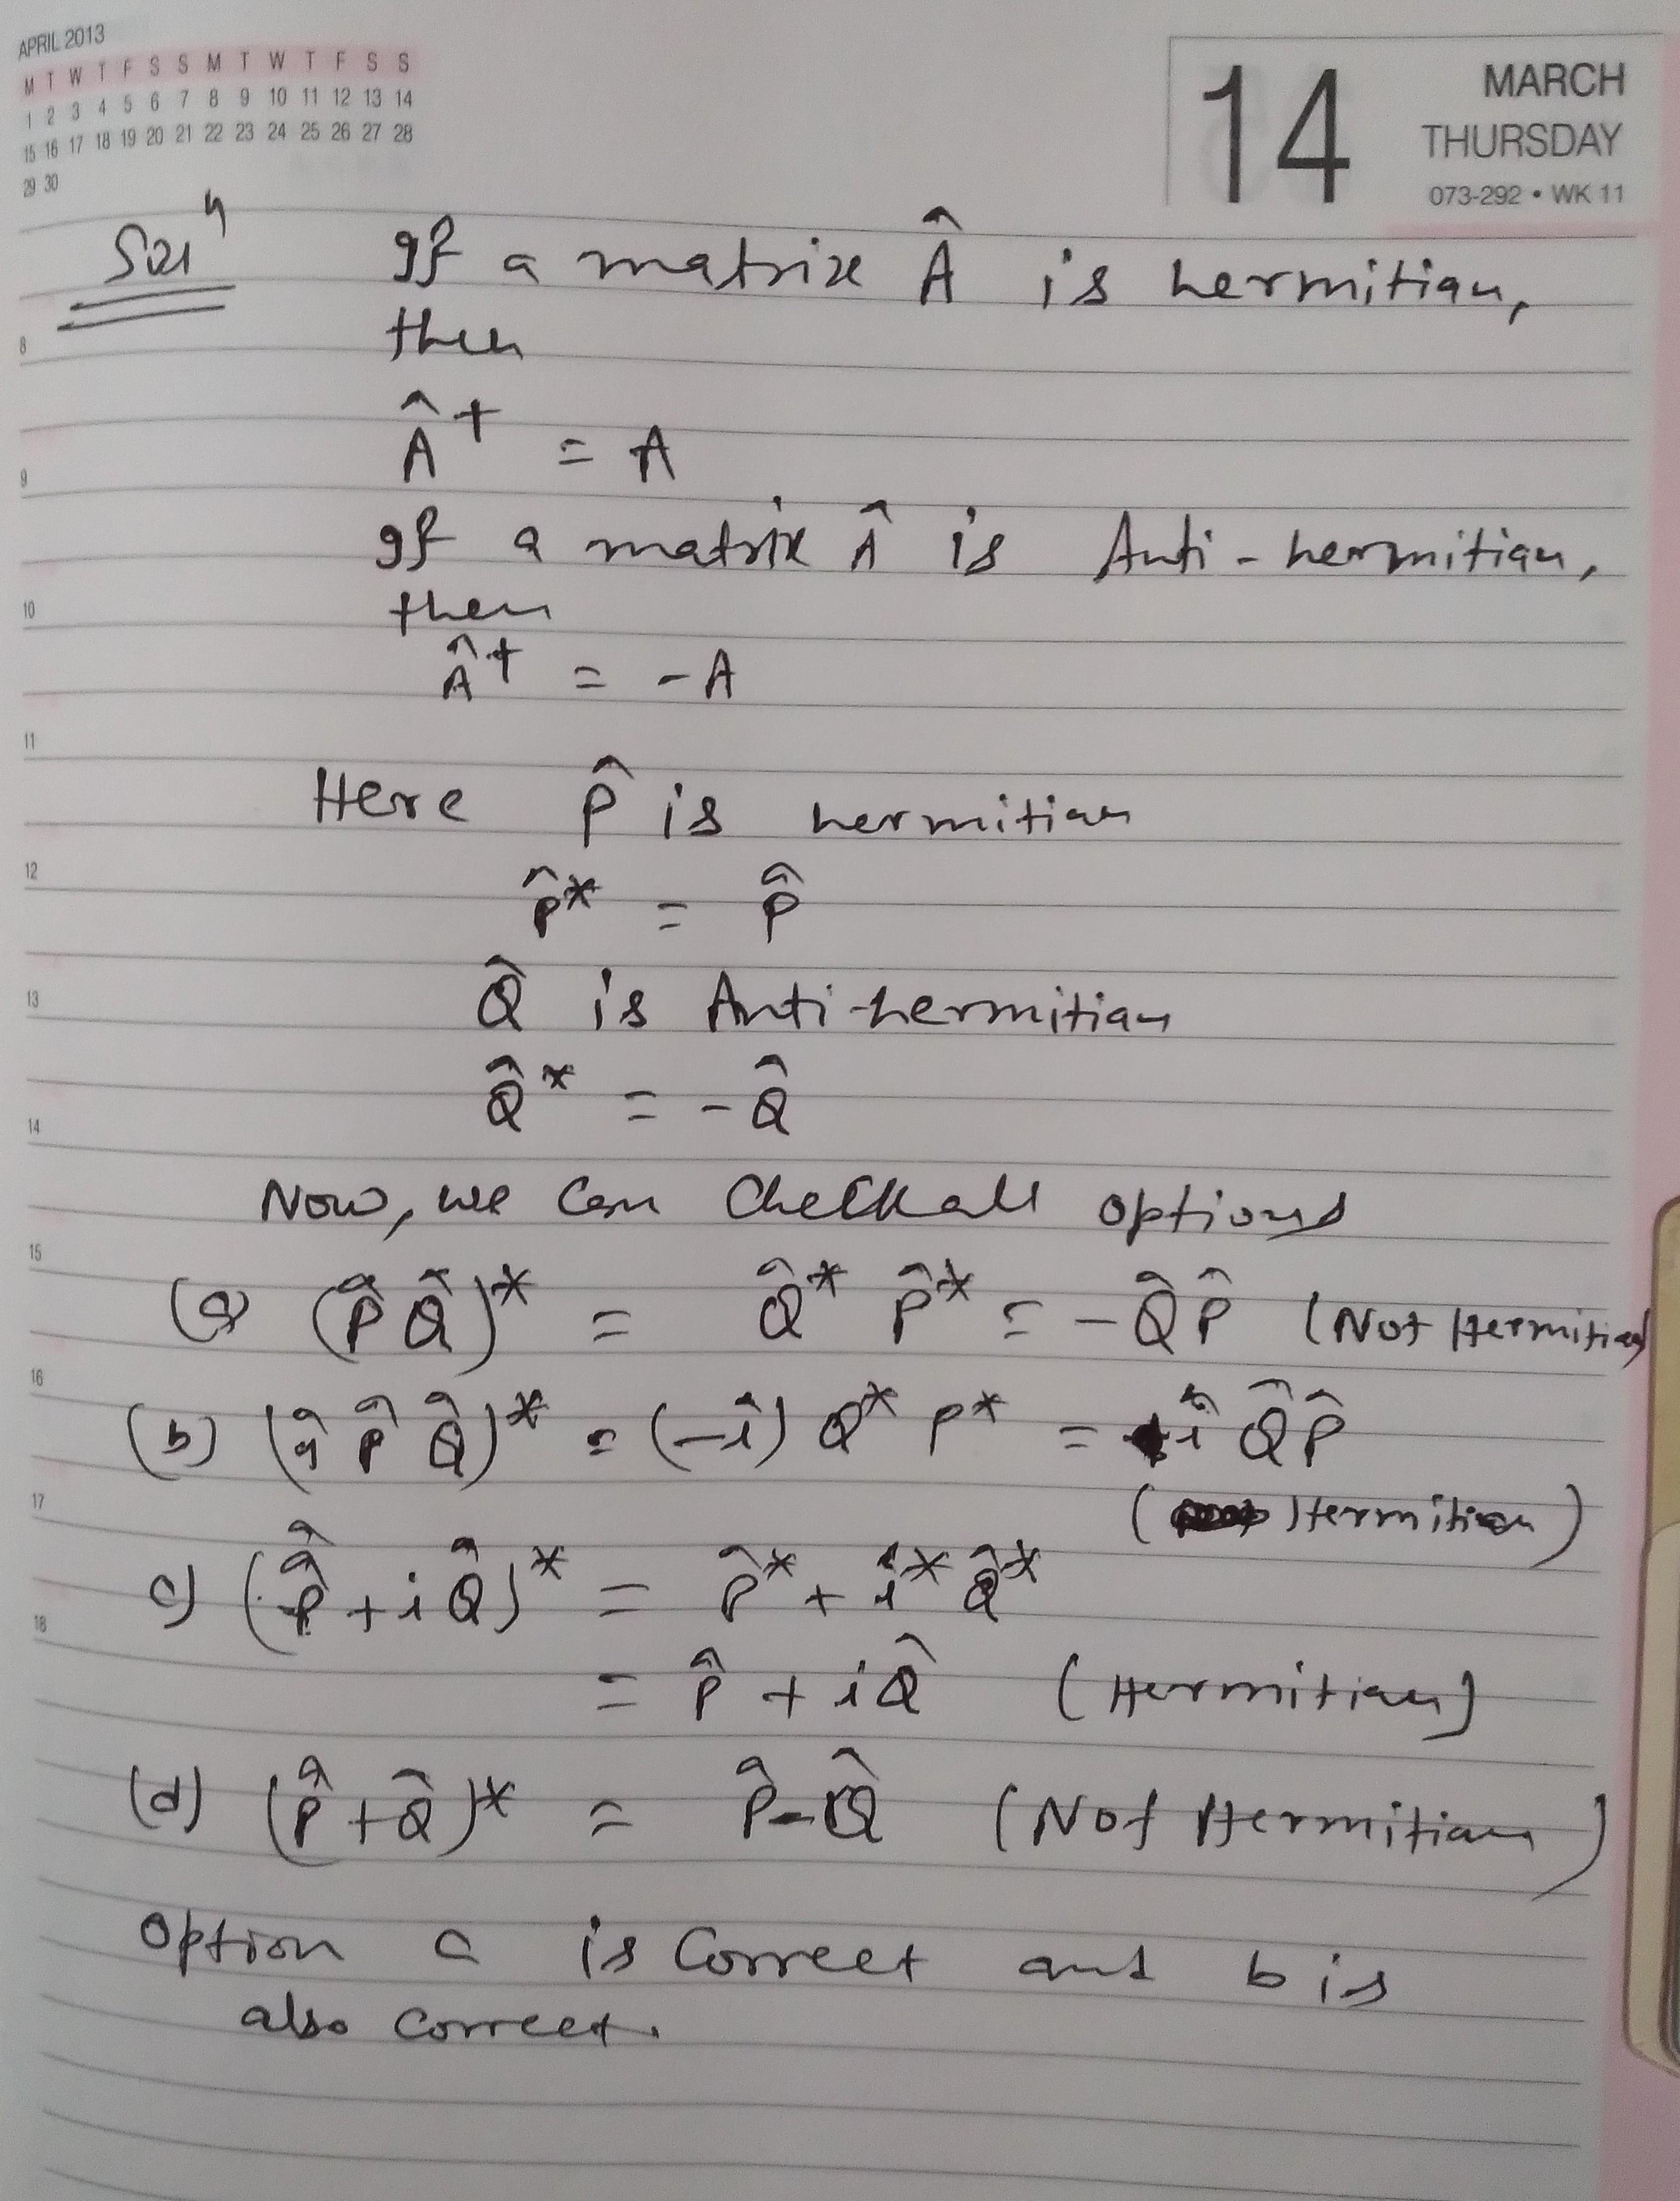 APRIL 2013
M T W T F S S M T W T F S S
1 2 3 4 5 6 7 8 9 10 11 12 13 14
15 16 17 18 19 20 21 22 23 24 25 26 27 28
29 30
14
MARCH
THURSDAY
073-292 • WK 11
Solⁿ If a matrix Â is hermitian,
then
8
Â† = A
9
If a matrix Â is Anti-hermitian,
10
then
Â† = -A
11
Here P̂ is hermitian
12
P̂* = P̂
13
Q̂ is Anti-hermitian
Q̂* = -Q̂
14
Now, we can Check all options
15
(a) (P̂ Q̂)* = Q̂* P̂* = -Q̂ P̂ (Not Hermitian)
16
(b) (i P̂ Q̂)* = (-i) Q* P* = i Q̂ P̂
17
(Hermitian)
c) (P̂ + i Q̂)* = P̂* + i* Q̂*
18
= P̂ + i Q̂ (Hermitian)
(d) (P̂ + Q̂)* = P̂ - Q̂ (Not Hermitian)
Option c is Correct and b is
also correct.